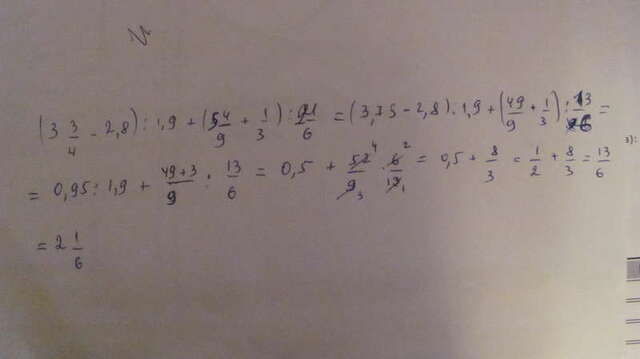 (3 3/4 - 2,8) : 1,9 + (5 4/9 + 1/3) : 2 1/6 = (3,75 - 2,8) : 1,9 + (49/9 + 1/3) : 13/6 =
= 0,95 : 1,9 + 49+3/9 : 13/6 = 0,5 + 52/9 · 6/13 = 0,5 + 8/3 = 1/2 + 8/3 = 13/6
= 2 1/6